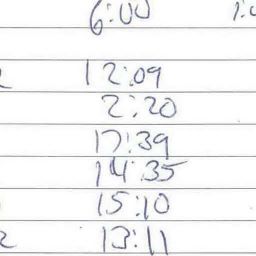 6:00
12:09
2:20
17:39
14:35
15:10
13:11